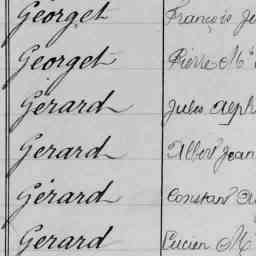 Georget François Je
Georget Pierre M
Gérard Jules Alph
Gerard Albert Jean
Gérard Constant
Gerard Lucien M